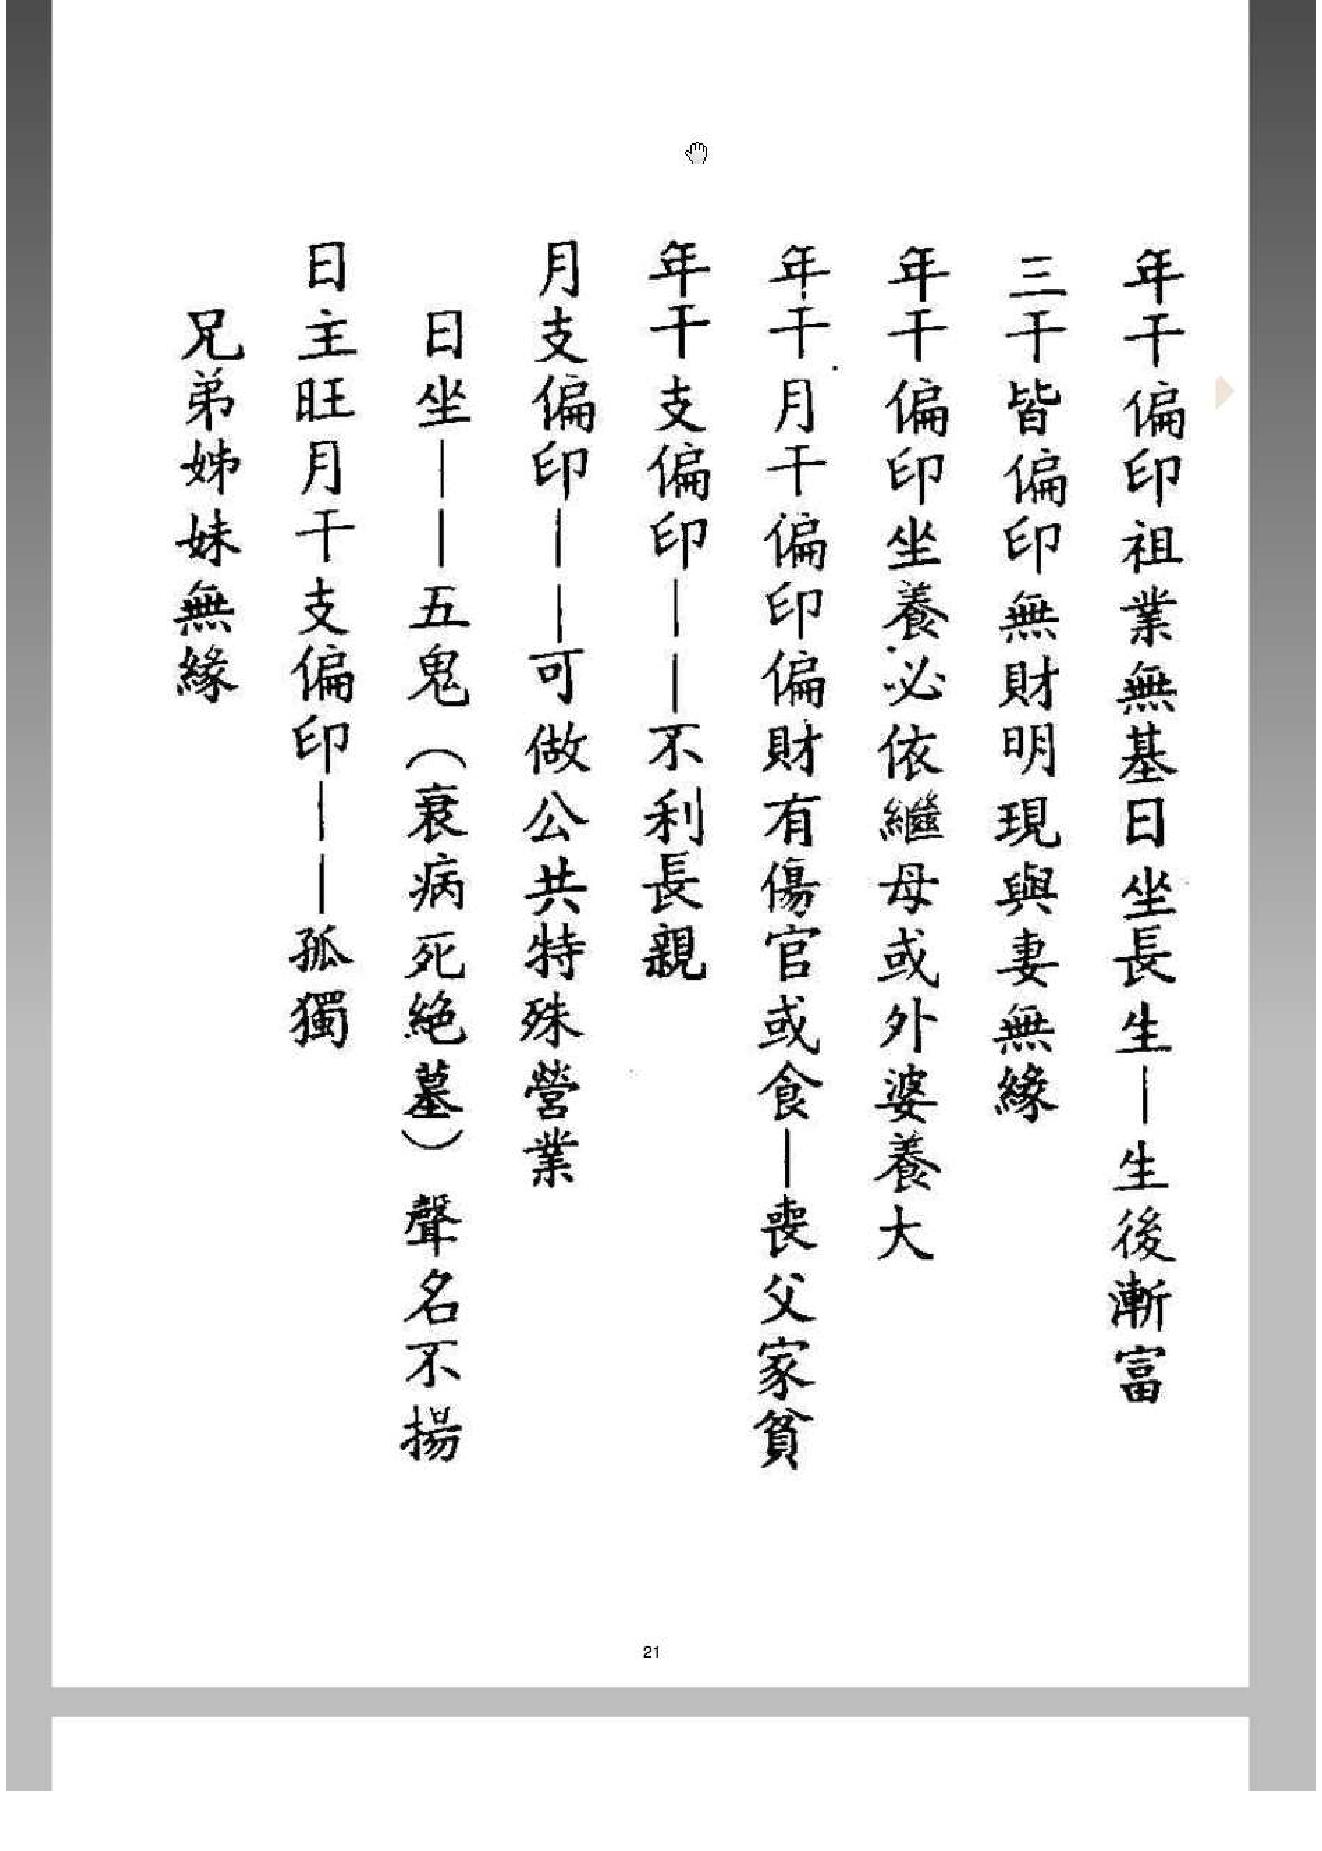 年干偏印祖業無基日坐長生—生後漸富
三干皆偏印無財明現與妻無緣
年干偏印坐養必依繼母或外婆養大
年干月干偏印偏財有傷官或食—喪父家貧
年干支偏印——不利長親
月支偏印——可做公共特殊營業
日坐——五鬼（衰病死絕墓）聲名不揚
日主旺月干支偏印——孤獨
兄弟姊妹無緣
21